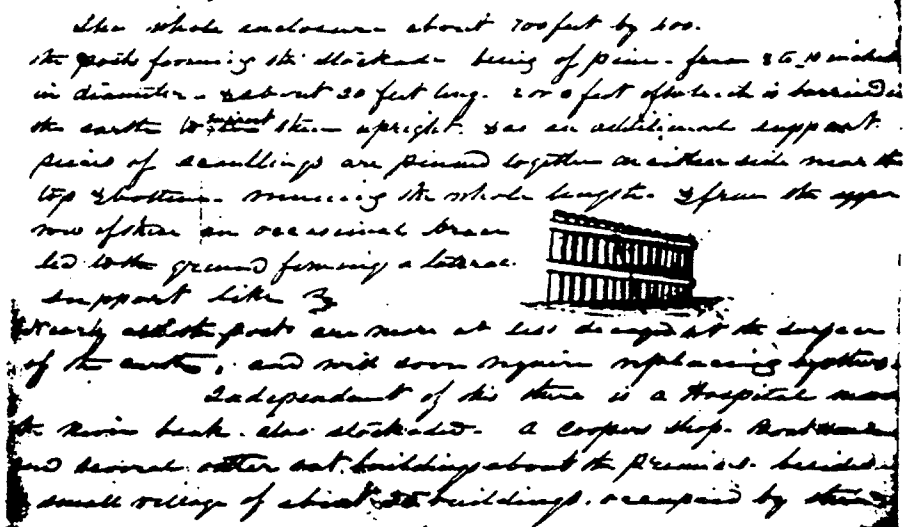 The whole enclosure about 700 feet by 400.
the posts forming the stockade being of pine from 8 to 10 inches
in diameter & about 20 feet long. 2 or 3 feet of which is burried in
the earth to support them upright. & as an additional support
pieces of scantlings are pinned together on either side near the
top & bottom running the whole length & from the upper
row of these an occasional brace
led to the ground forming a lateral
support like
Nearly all the posts are more or less decayed at the surface
of the earth, and will soon require replacing by others.
Independant of this there is a Hospital near
the River bank. also stockaded. A Coopers Shop. Boat House
and several other out buildings about the premises. besides a
small village of about buildings. occupied by